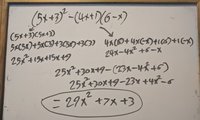 (5x+3)² - (4x+1)(6-x)
(5x+3)(5x+3)
5x(5x)+5x(3)+3(5x)+3(3)
25x²+15x+15x+9
4x(6)+4x(-x)+1(6)+1(-x)
24x-4x²+6-x
25x²+30x+9-(23x-4x²+6)
25x²+30x+9-23x+4x²-6
= 29x²+7x+3